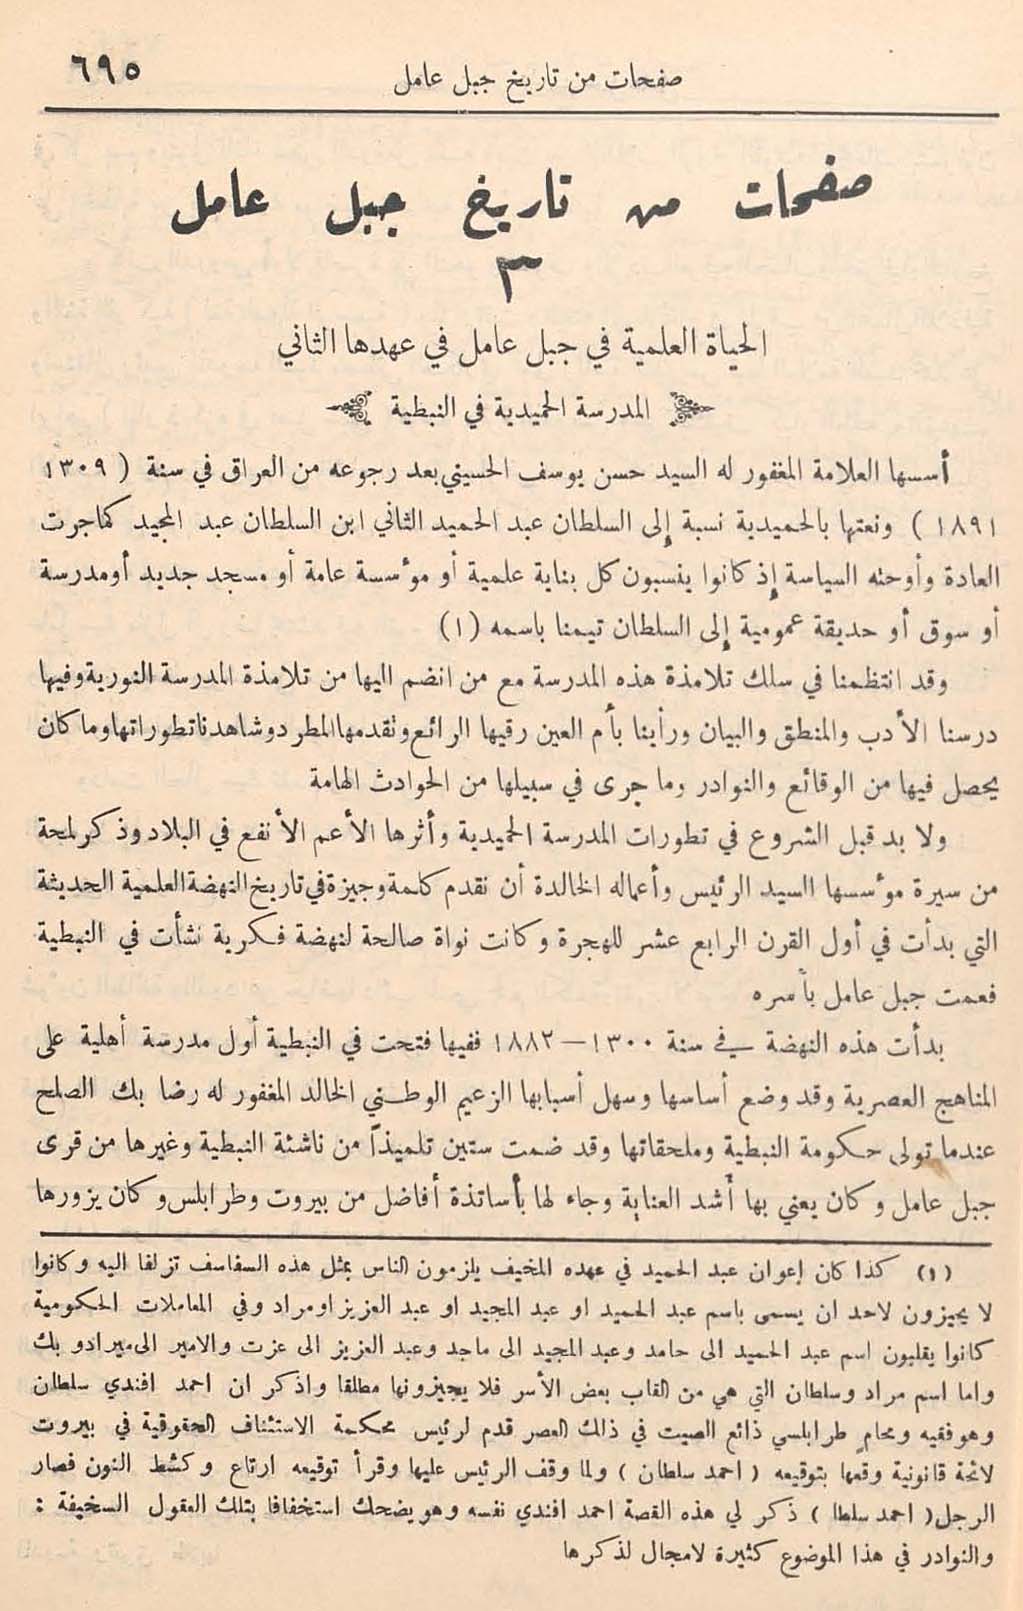 صفحات من تاريخ جبل عامل
٦٩٥
صفحات من تاريخ جبل عامل
٣
الحياة العلمية في جبل عامل في عهدها الثاني
المدرسة الحميدية في النبطية
أسسها العلامة المغفور له السيد حسن يوسف الحسيني بعد رجوعه من العراق في سنة ( ١٣٠٩
١٨٩١ ) ونعتها بالحميدية نسبة إلى السلطان عبد الحميد الثاني ابن السلطان عبد المجيد كماجرت
العادة وأوحته السياسة إذ كانوا ينسبون كل بناية علمية أو مؤسسة عامة أو مسجد جديد أومدرسة
أو سوق أو حديقة عمومية إلى السلطان تيمنا باسمه (١)
وقد انتظمنا في سلك تلامذة هذه المدرسة مع من انضم اليها من تلامذة المدرسة النورية وفيها
درسنا الأدب والمنطق والبيان ورأينا بأم العين رقيها الرائع وتقدمها المطرد وشاهدنا تطوراتها وما كان
يحصل فيها من الوقائع والنوادر وما جرى في سبيلها من الحوادث الهامة
ولا بد قبل الشروع في تطورات المدرسة الحميدية وأثرها الأعم الأنفع في البلاد وذكر لمحة
من سيرة مؤسسها السيد الرئيس وأعماله الخالدة أن نقدم كلمة وجيزة في تاريخ النهضة العلمية الحديثة
التي بدأت في أول القرن الرابع عشر للهجرة وكانت نواة صالحة لنهضة فكرية نشأت في النبطية
فعمت جبل عامل بأسره
بدأت هذه النهضة في سنة ١٣٠٠ – ١٨٨٢ ففيها فتحت في النبطية أول مدرسة أهلية على
المناهج العصرية وقد وضع أساسها وسهل أسبابها الزعيم الوطني الخالد المغفور له رضا بك الصلح
عندما تولى حكومة النبطية وملحقاتها وقد ضمت ستين تلميذاً من ناشئة النبطية وغيرها من قرى
جبل عامل وكان يعني بها أشد العناية وجاء لها بأساتذة أفاضل من بيروت وطرابلس وكان يزورها
(١) كذا كان إعوان عبد الحميد في عهده المخيف يلزمون الناس بمثل هذه السفاسف تزلفا اليه وكانوا
لا يجيزون لاحد ان يسمى باسم عبد الحميد او عبد المجيد او عبد العزيز اومراد وفي المعاملات الحكومية
كانوا يقلبون اسم عبد الحميد الى حامد وعبد المجيد الى ماجد وعبد العزيز الى عزت والامير الى ميرادو بك
واما اسم مراد وسلطان التي هي من القاب بعض الأسر فلا يجيزونها مطلقا واذكر ان احمد افندي سلطان
وهو فقيه ومحام طرابلسي ذائع الصيت في ذلك العصر قدم لرئيس محكمة الاستئناف الحقوقية في بيروت
لائحة قانونية وقعها بتوقيعه ( احمد سلطان ) ولما وقف الرئيس عليها وقرأ توقيعه ارتاع وكشط النون فصار
الرجل ( احمد سلطا ) ذكر لي هذه القصة احمد افندي نفسه وهو يضحك استخفافا بتلك العقول السخيفة :
والنوادر في هذا الموضوع كثيرة لامجال لذكرها